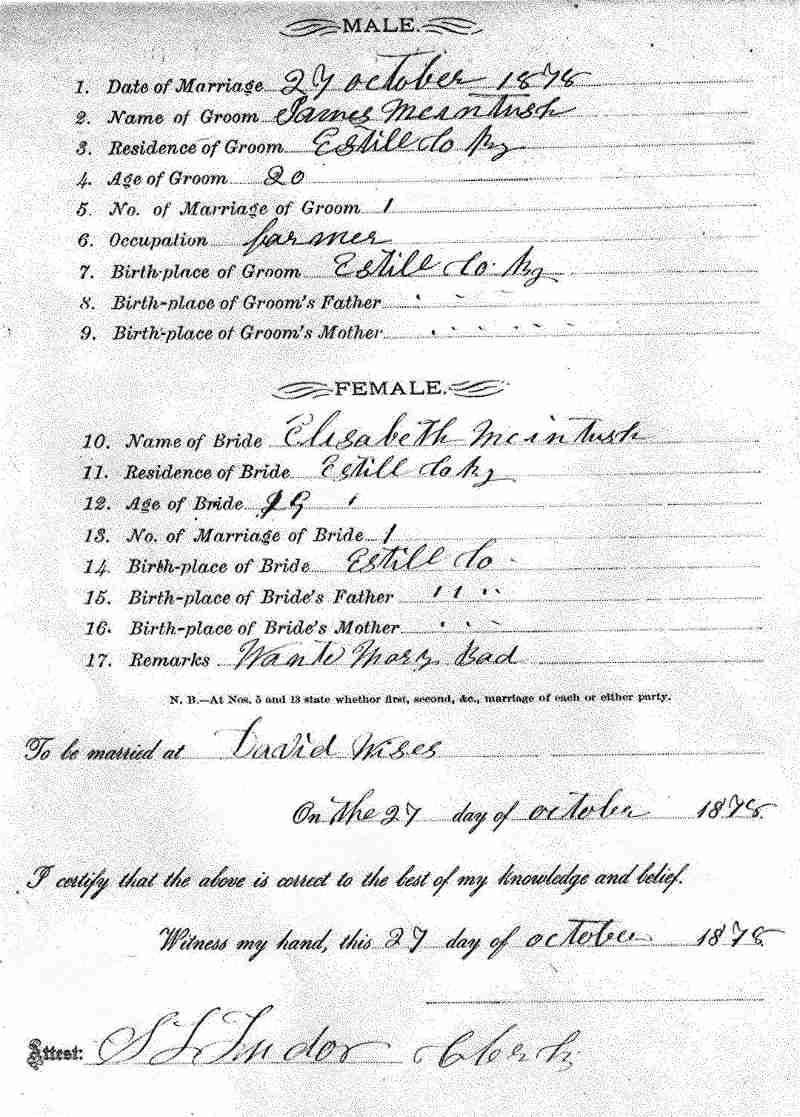 MALE.
1. Date of Marriage 27 october 1878
2. Name of Groom James McIntush
3. Residence of Groom Estill Co Ky
4. Age of Groom 20
5. No. of Marriage of Groom 1
6. Occupation farmer
7. Birth-place of Groom Estill Co. Ky
8. Birth-place of Groom's Father " "
9. Birth-place of Groom's Mother " " "
FEMALE.
10. Name of Bride Elisabeth Mcintush
11. Residence of Bride Estill Co Ky
12. Age of Bride 19
13. No. of Marriage of Bride 1
14. Birth-place of Bride Estill Co
15. Birth-place of Bride's Father " "
16. Birth-place of Bride's Mother " "
17. Remarks Wants Mary Bad
N. B.—At Nos. 5 and 13 state whethor first, second, &c., marriage of each or either party.
To be married at David Wises
On the 27 day of october 1878
I certify that the above is correct to the best of my knowledge and belief.
Witness my hand, this 27 day of october 1878
Attest: S L Tudor Clerk